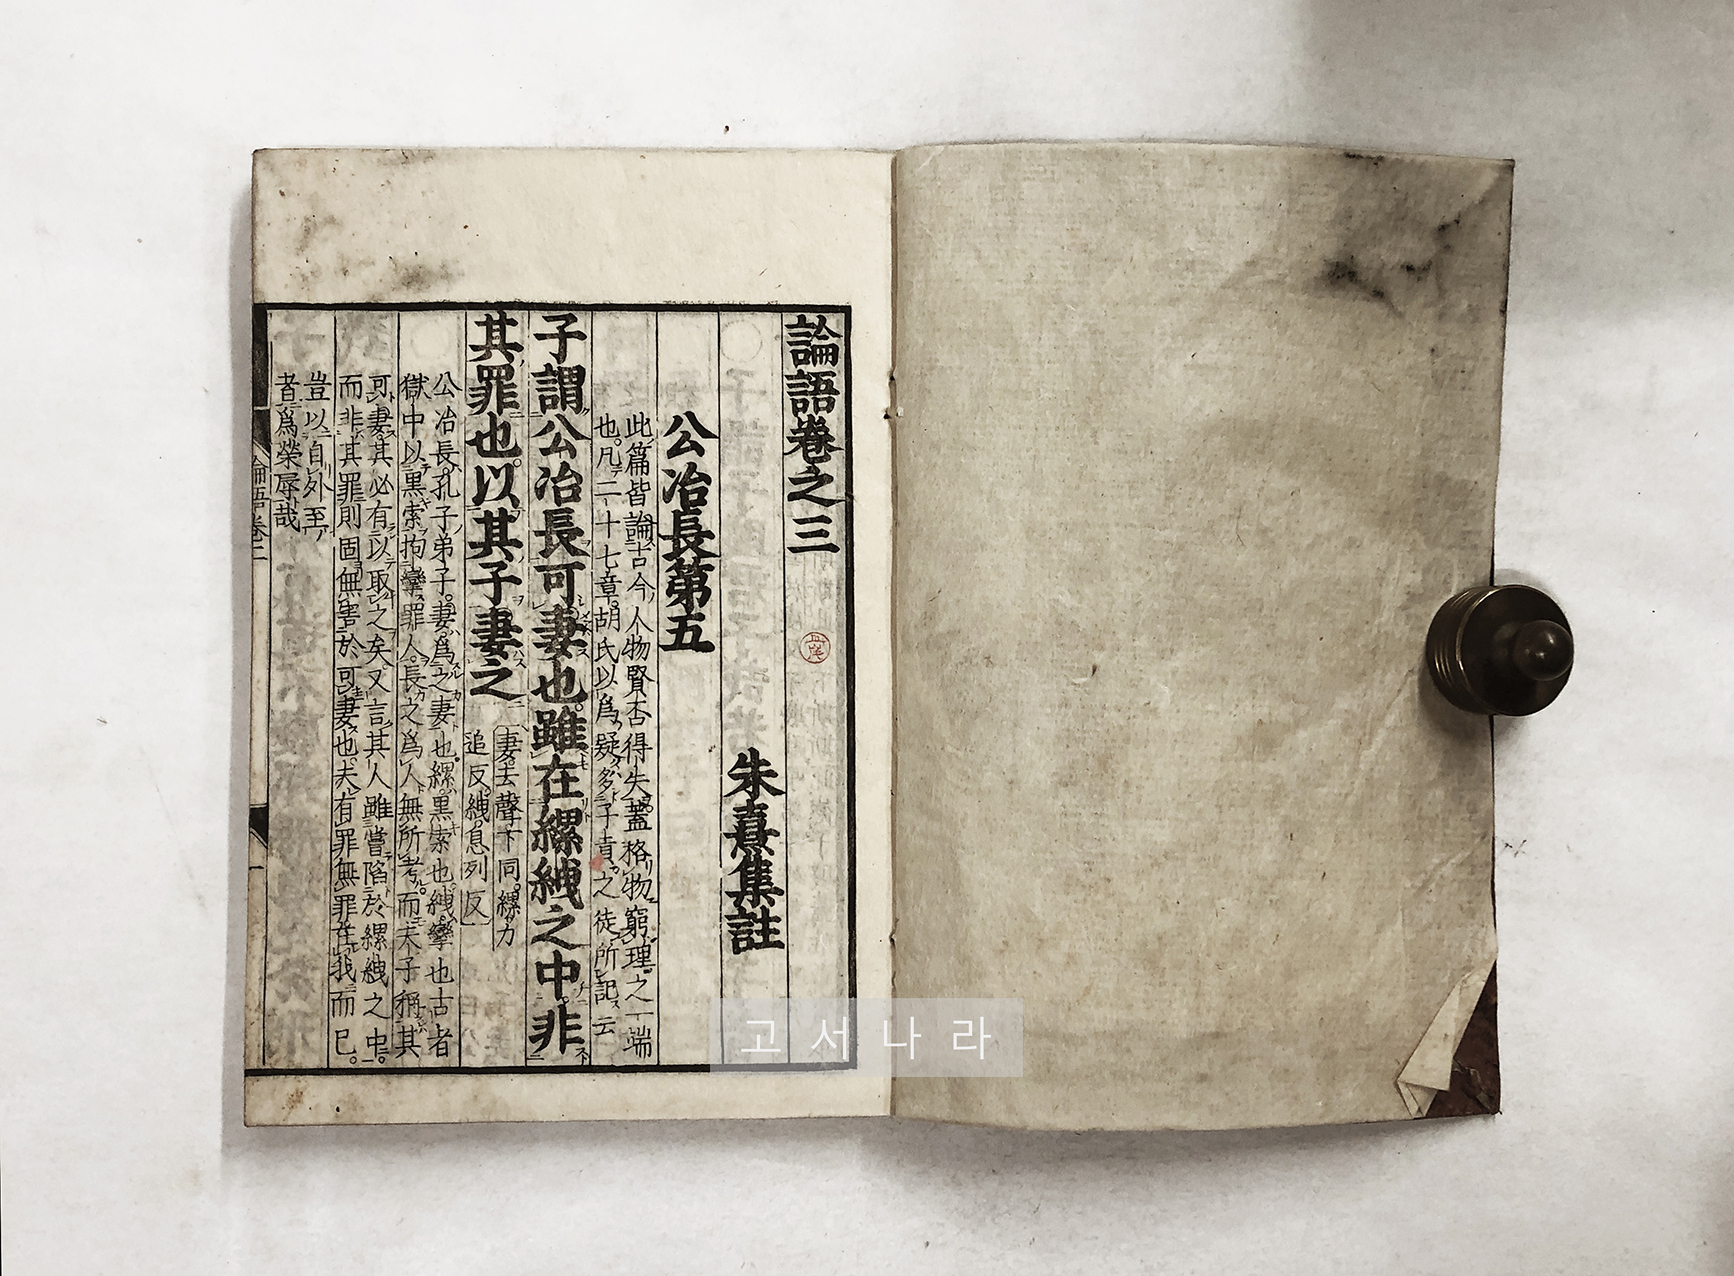 論語卷之三
朱熹集註
公冶長第五
此篇皆論古今人物賢否得失蓋格物窮理之一端
也凡二十七章胡氏以爲疑多子貢之徒所記云
子謂公冶長可妻也雖在縲絏之中非
其罪也以其子妻之
妻去聲下同縲力
追反絏息列反
公冶長孔子弟子妻爲之妻也縲黒索也絏攣也古者
獄中以黒索拘攣罪人長之爲人無所考而夫子稱其
可妻其必有以取之矣又言其人雖嘗陷於縲絏之中
而非其罪則固無害於可妻也夫有罪無罪在我而已
豈以自外至
者爲榮辱哉
論語卷三
一
고서나라